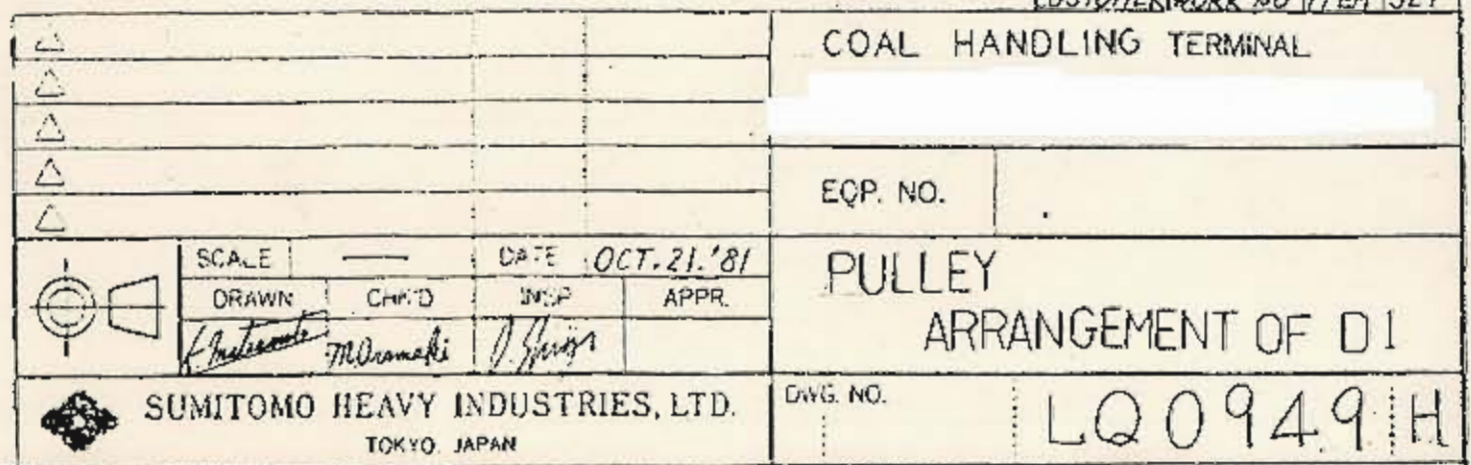 CUSTOMER WORK NO ITEM
COAL HANDLING TERMINAL
EQP. NO.
SCALE — DATE OCT. 21. '81
DRAWN CHK'D INSP APPR.
PULLEY
ARRANGEMENT OF D1
SUMITOMO HEAVY INDUSTRIES, LTD.
TOKYO, JAPAN
DWG. NO. LQ0949 H